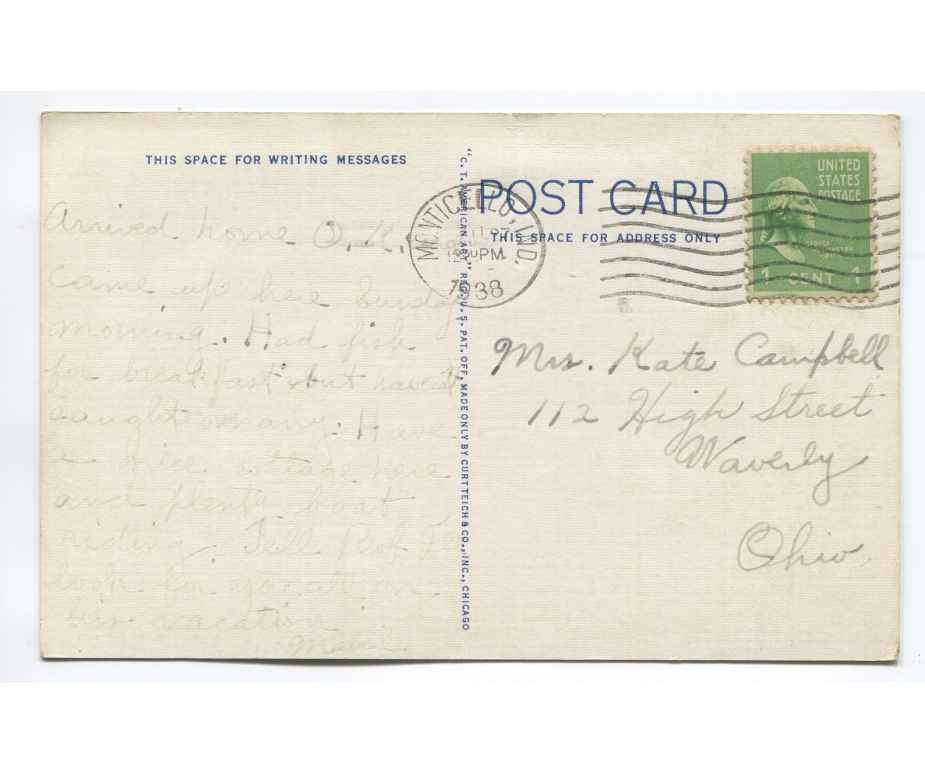 THIS SPACE FOR WRITING MESSAGES
Arrived home O.K.
Came up here Sunday
morning. Had fish
for breakfast but haven't
caught any. Have
a nice cottage here
and plenty boat
riding. Tell Bob I'll
look for you all on
his vacation.
"C.T. AMERICAN ART" REG. U. S. PAT. OFF. MADE ONLY BY CURT TEICH & CO., INC., CHICAGO
POST CARD
THIS SPACE FOR ADDRESS ONLY
MONTICELLO, IND.
PM
1938
UNITED
STATES
POSTAGE
1 CENT 1
Mrs. Kate Campbell
112 High Street
Waverly
Ohio